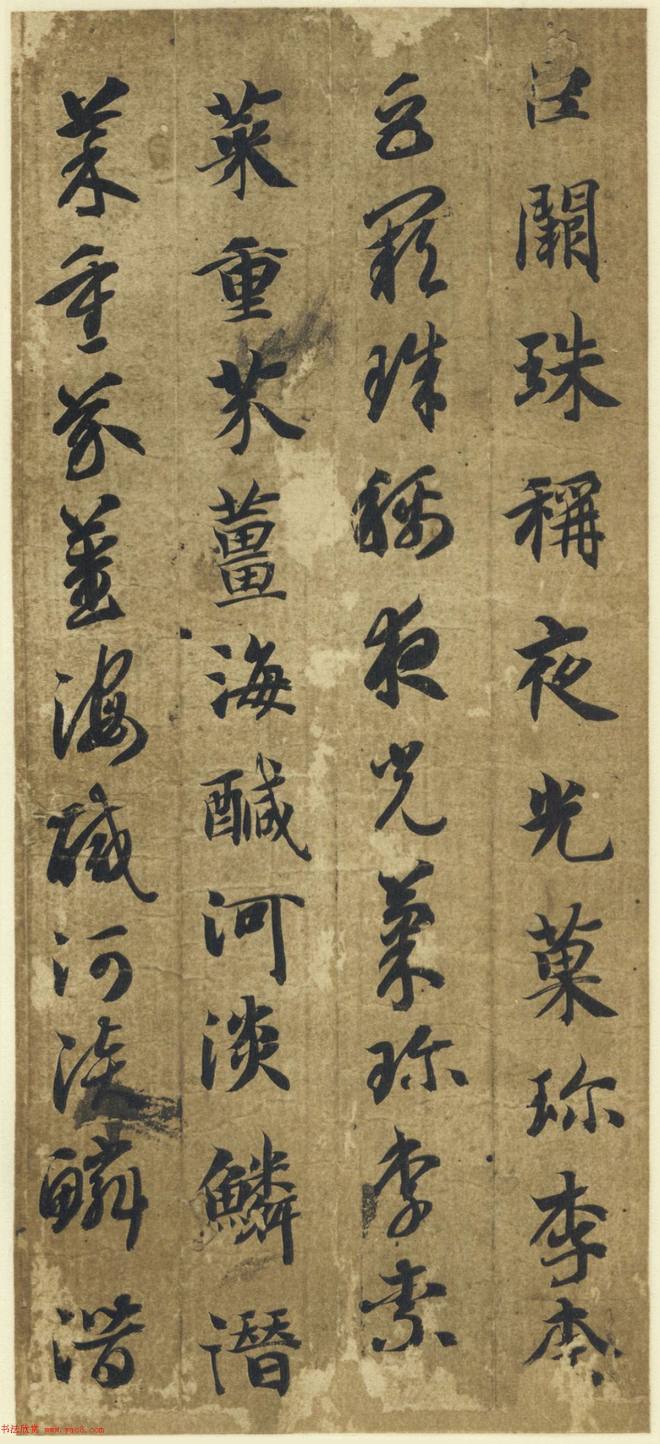 巨闕珠稱夜光菓珎李柰
巨闕珠稱夜光菓珎李柰
菜重芥薑海醎河淡鱗潛
菜重芥薑海醎河淡鱗潛
书法欣赏 www.yac8.com